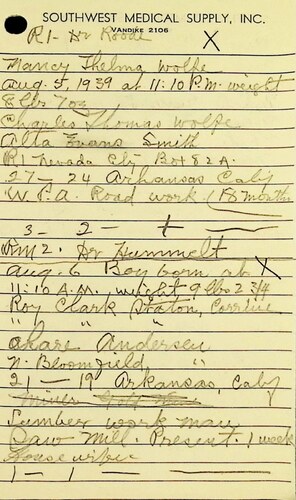 SOUTHWEST MEDICAL SUPPLY, INC.
VANDIKE 2106
R1- Dr Roode X
Nancy Thelma Wolfe
Aug. 5, 1939 at 11:10 P.M. weight
8 lbs 7oz
Charles Thomas Wolfe
Alta Evans Smith
R1 Nevada City Box 82 A.
27 — 24 Arkansas Calif
W.P.A. Road work (18 months
3 — 2 — 1 —
Rm 2. Dr Hummelt
Aug. 6 Boy born at X
11:10 A.M. weight 9 lbs 2 3/4
Roy Clark Staton,
" " "
Andersen
N. Bloomfield, "
21 — 19 Arkansas, Calif
Miner Gold Mine
Lumber work man
Saw Mill. Present. 1 week
Housewife
1 — 1 —